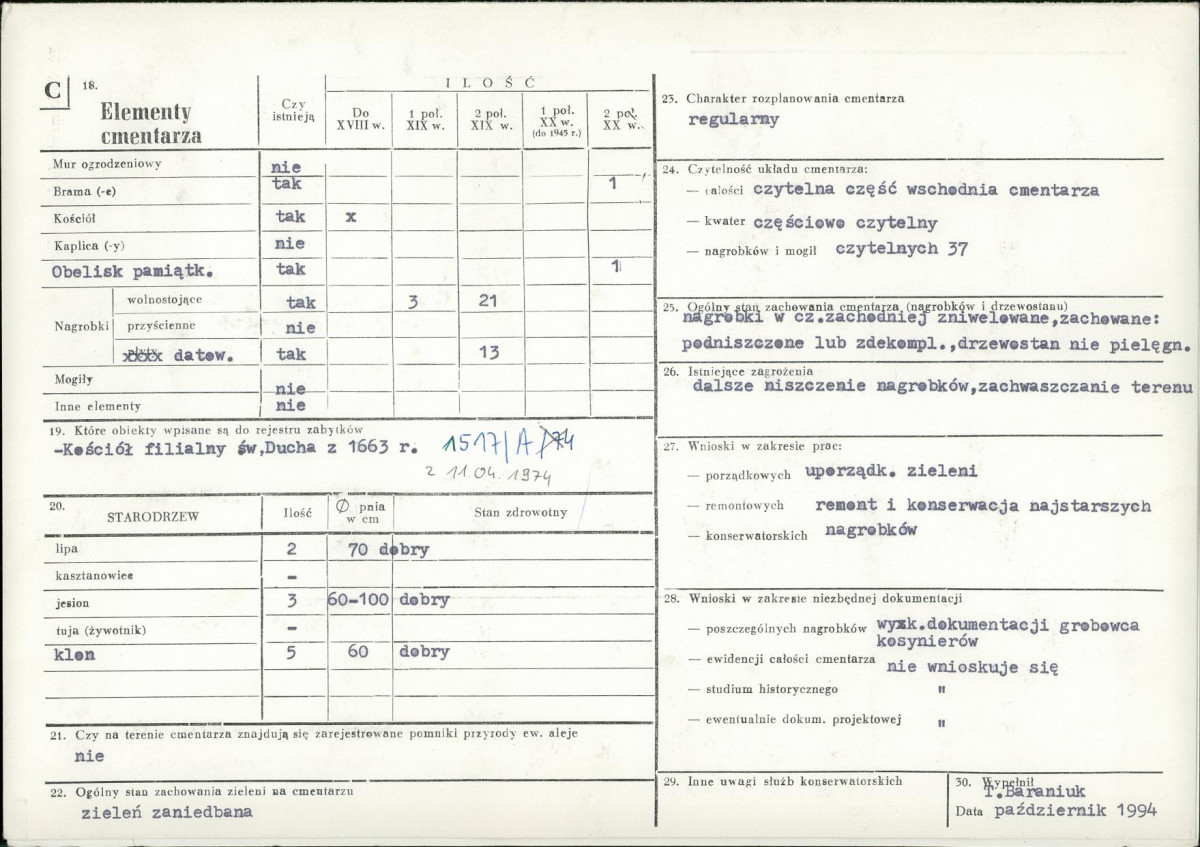 C 18.
Elementy
cmentarza
Czy
istnieją
I L O Ś Ć
Do
XVIII w.
1 poł.
XIX w.
2 poł.
XIX w.
1 poł.
XX w.
(do 1945 r.)
2 poł.
XX w.
Mur ogrodzeniowy nie
Brama (-e) tak 1
Kościół tak x
Kaplica (-y) nie
Obelisk pamiątk. tak 1
Nagrobki
wolnostojące tak 3 21
przyścienne nie
płyty datow. tak 13
Mogiły nie
Inne elementy nie
19. Które obiekty wpisane są do rejestru zabytków
-Kościół filialny św,Ducha z 1663 r. 1517/A/74
z 11.04.1974
20.
STARODRZEW
Ilość
Ø pnia
w cm
Stan zdrowotny
lipa 2 70 dobry
kasztanowiec -
jesion 3 60-100 dobry
tuja (żywotnik) -
klon 5 60 dobry
21. Czy na terenie cmentarza znajdują się zarejestrowane pomniki przyrody ew. aleje
nie
22. Ogólny stan zachowania zieleni na cmentarzu
zieleń zaniedbana
23. Charakter rozplanowania cmentarza
regularny
24. Czytelność układu cmentarza:
— całości czytelna część wschodnia cmentarza
— kwater częściowo czytelny
— nagrobków i mogił czytelnych 37
25. Ogólny stan zachowania cmentarza (nagrobków i drzewostanu)
nagrobki w cz.zachodniej zniwelowane,zachowane:
podniszczone lub zdekompl.,drzewostan nie pielęgn.
26. Istniejące zagrożenia
dalsze niszczenie nagrobków,zachwaszczanie terenu
27. Wnioski w zakresie prac:
— porządkowych uporządk. zieleni
— remontowych remont i konserwacja najstarszych
— konserwatorskich nagrobków
28. Wnioski w zakresie niezbędnej dokumentacji
— poszczególnych nagrobków wyk.dokumentacji grobowca
kosynierów
— ewidencji całości cmentarza nie wnioskuje się
— studium historycznego "
— ewentualnie dokum. projektowej "
29. Inne uwagi służb konserwatorskich
30. Wypełnił
T.Baraniuk
Data październik 1994